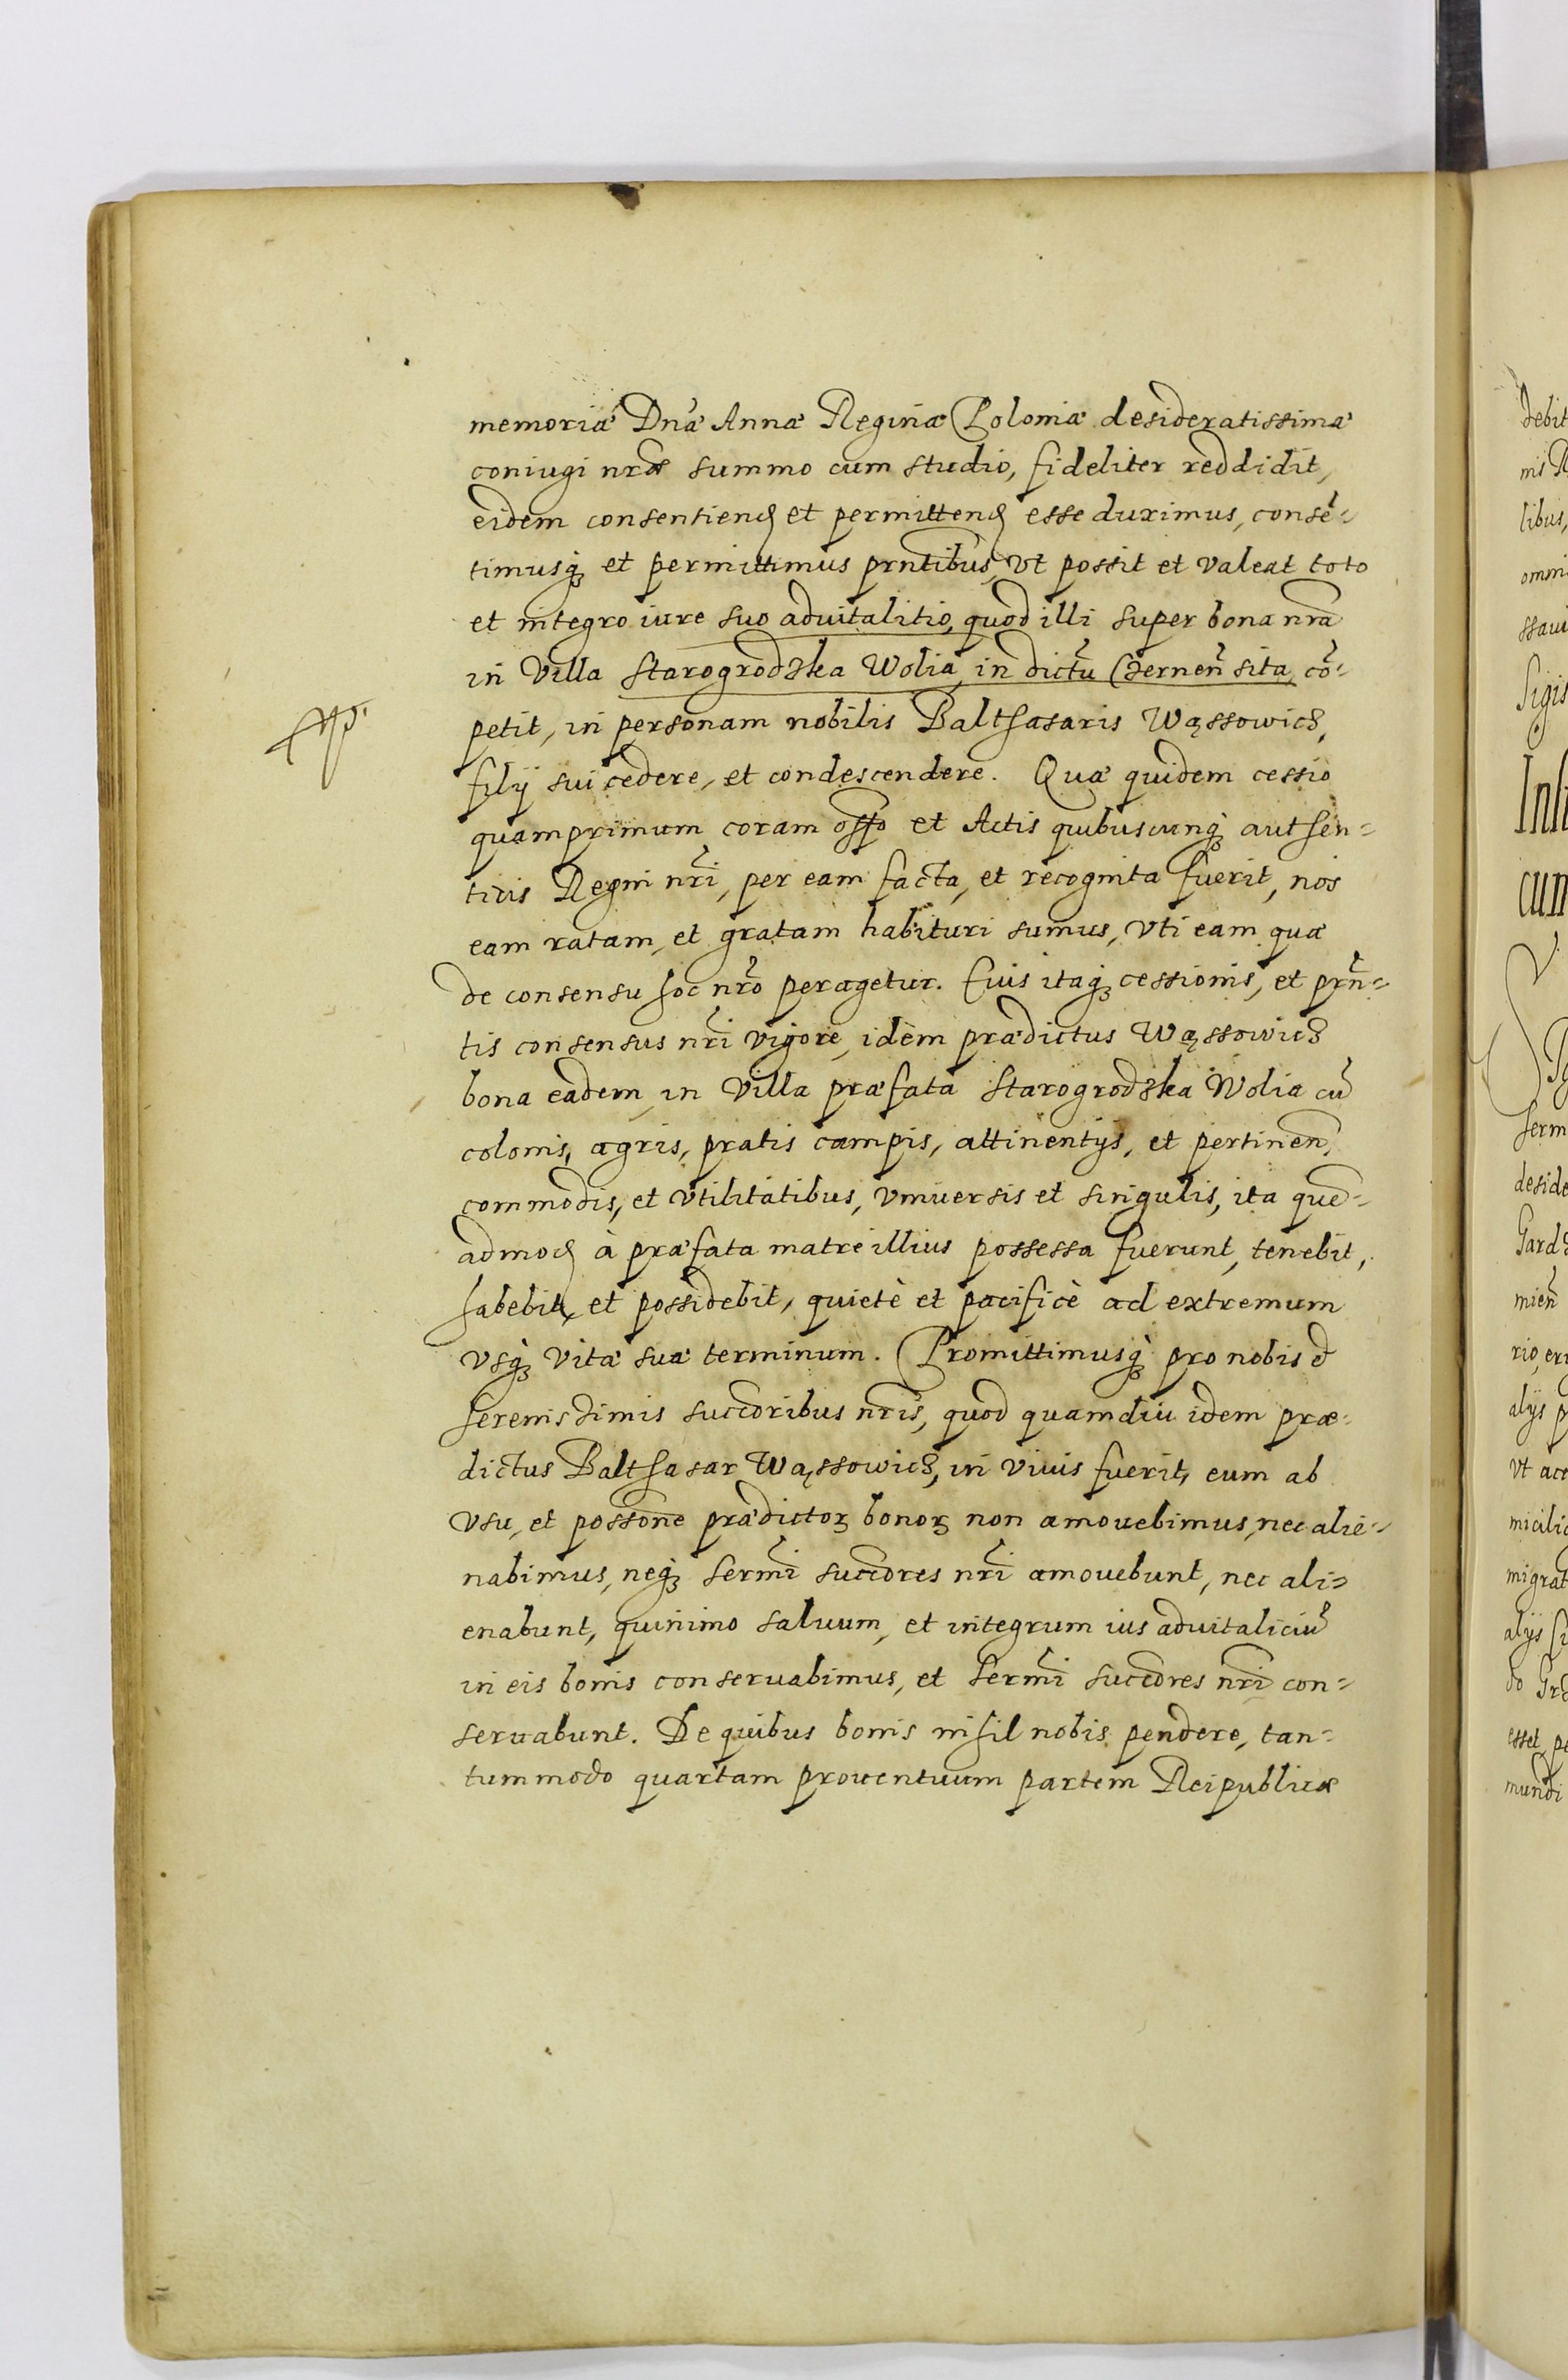 memoriæ Dnæ Annæ Reginæ Poloniæ desideratissimæ
coniugi nræ summo cum studio, fideliter reddidit,
eidem consentiend et permittend esse duximus, consē-
timusq et permittimus prntibus, vt possit et valeat toto
et integro iure suo aduitalitio, quod illi super bona nra
in Villa Starogrodzka Wolia, in dictu Czernen sita, cō-
petit, in personam nobilis Balthasaris Wąssowicz,
filij sui cedere, et condescendere. Quæ quidem cessio
quamprimum coram offo et Actis quibuscunq authen-
ticis Regni nri, per eam facta, et recognita fuerit, nos
eam ratam, et gratam habituri sumus, vti eam quæ
de consensu hoc nro peragetur. Cuius itaq cessionis, et prn-
tis consensus nri vigore, idem prædictus Wąssowicz
bona eadem, in Villa præfata Starogrodzka Wolia cū
colonis, agris, pratis campis, attinentijs, et pertinen,
commodis, et vtilitatibus, vniuersis et singulis, ita quē-
admod à præfata matre illius possessa fuerunt, tenebit,
habebit, et possidebit, quietè et pacificè ad extremum
vsq vitæ suæ terminum. Promittimusq pro nobis et
serenissimis succoribus nris, quod quamdiu idem præ-
dictus Balthasar Wąssowicz, in viuis fuerit, eum ab
vsu, et possone prædictoꝝ bonoꝝ non amouebimus, nec alie-
nabimus, neq sermi succores nri amouebunt, nec ali-
enabunt, quinimo saluum, et integrum ius aduitaliciū
in eis bonis conseruabimus, et sermi succores nri con-
seruabunt. De quibus bonis nihil nobis pendere, tan-
tummodo quartam prouentuum partem Reipublicæ